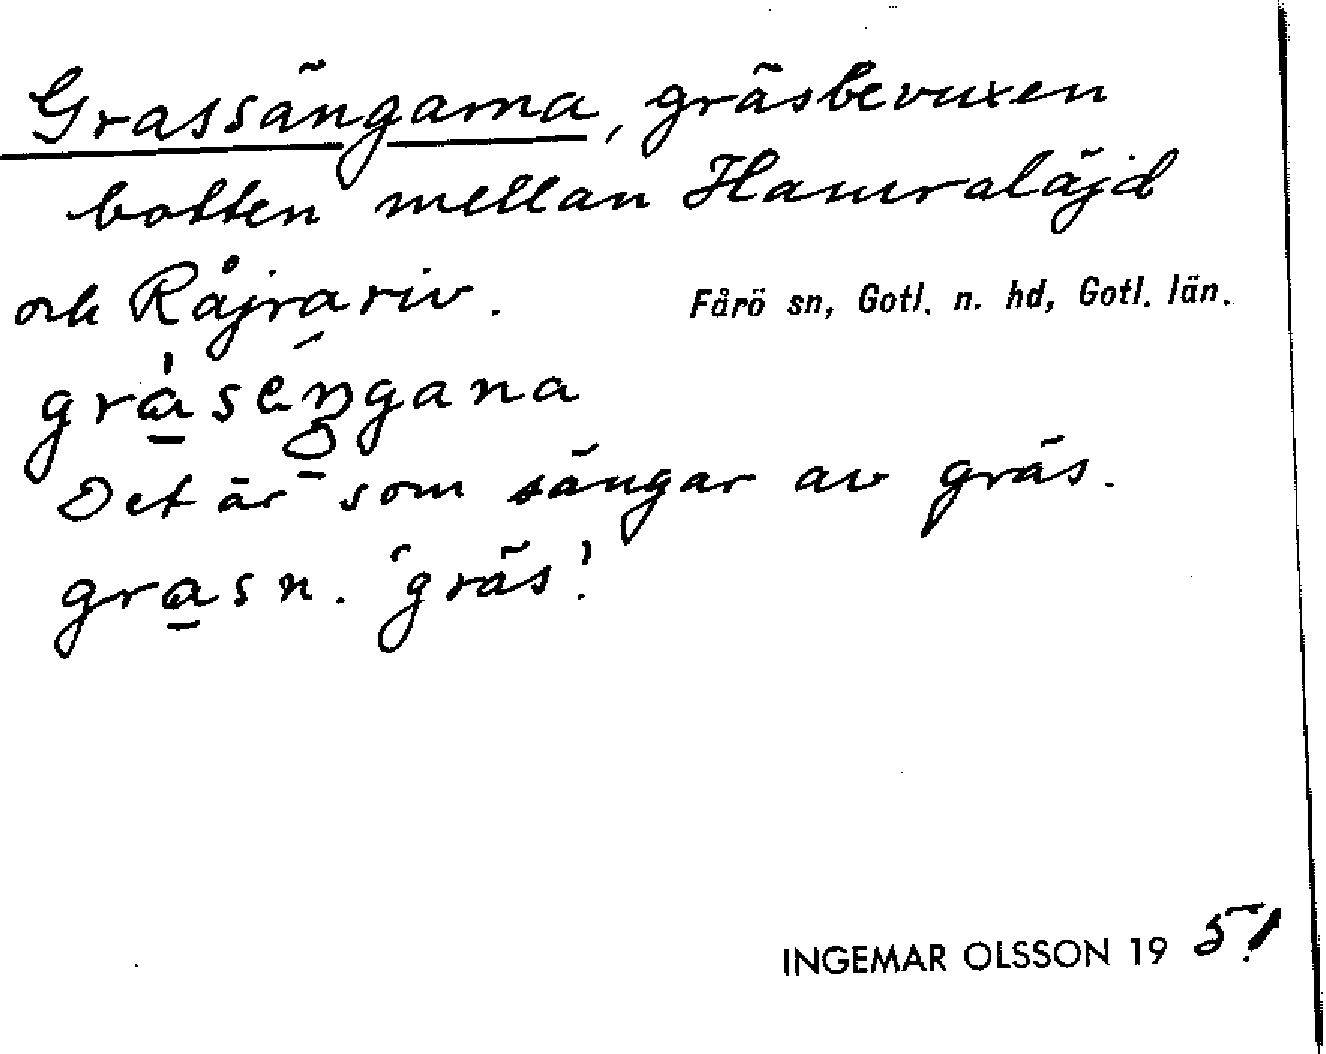 Grassängarna, gräsbevuxen
botten mellan Hamraläjd
och Råjrariv.
Fårö sn, Gotl. n. hd, Gotl. län.
gràséŋgana
Det är som sängar av gräs.
gras n. 'gräs'.
INGEMAR OLSSON 1951